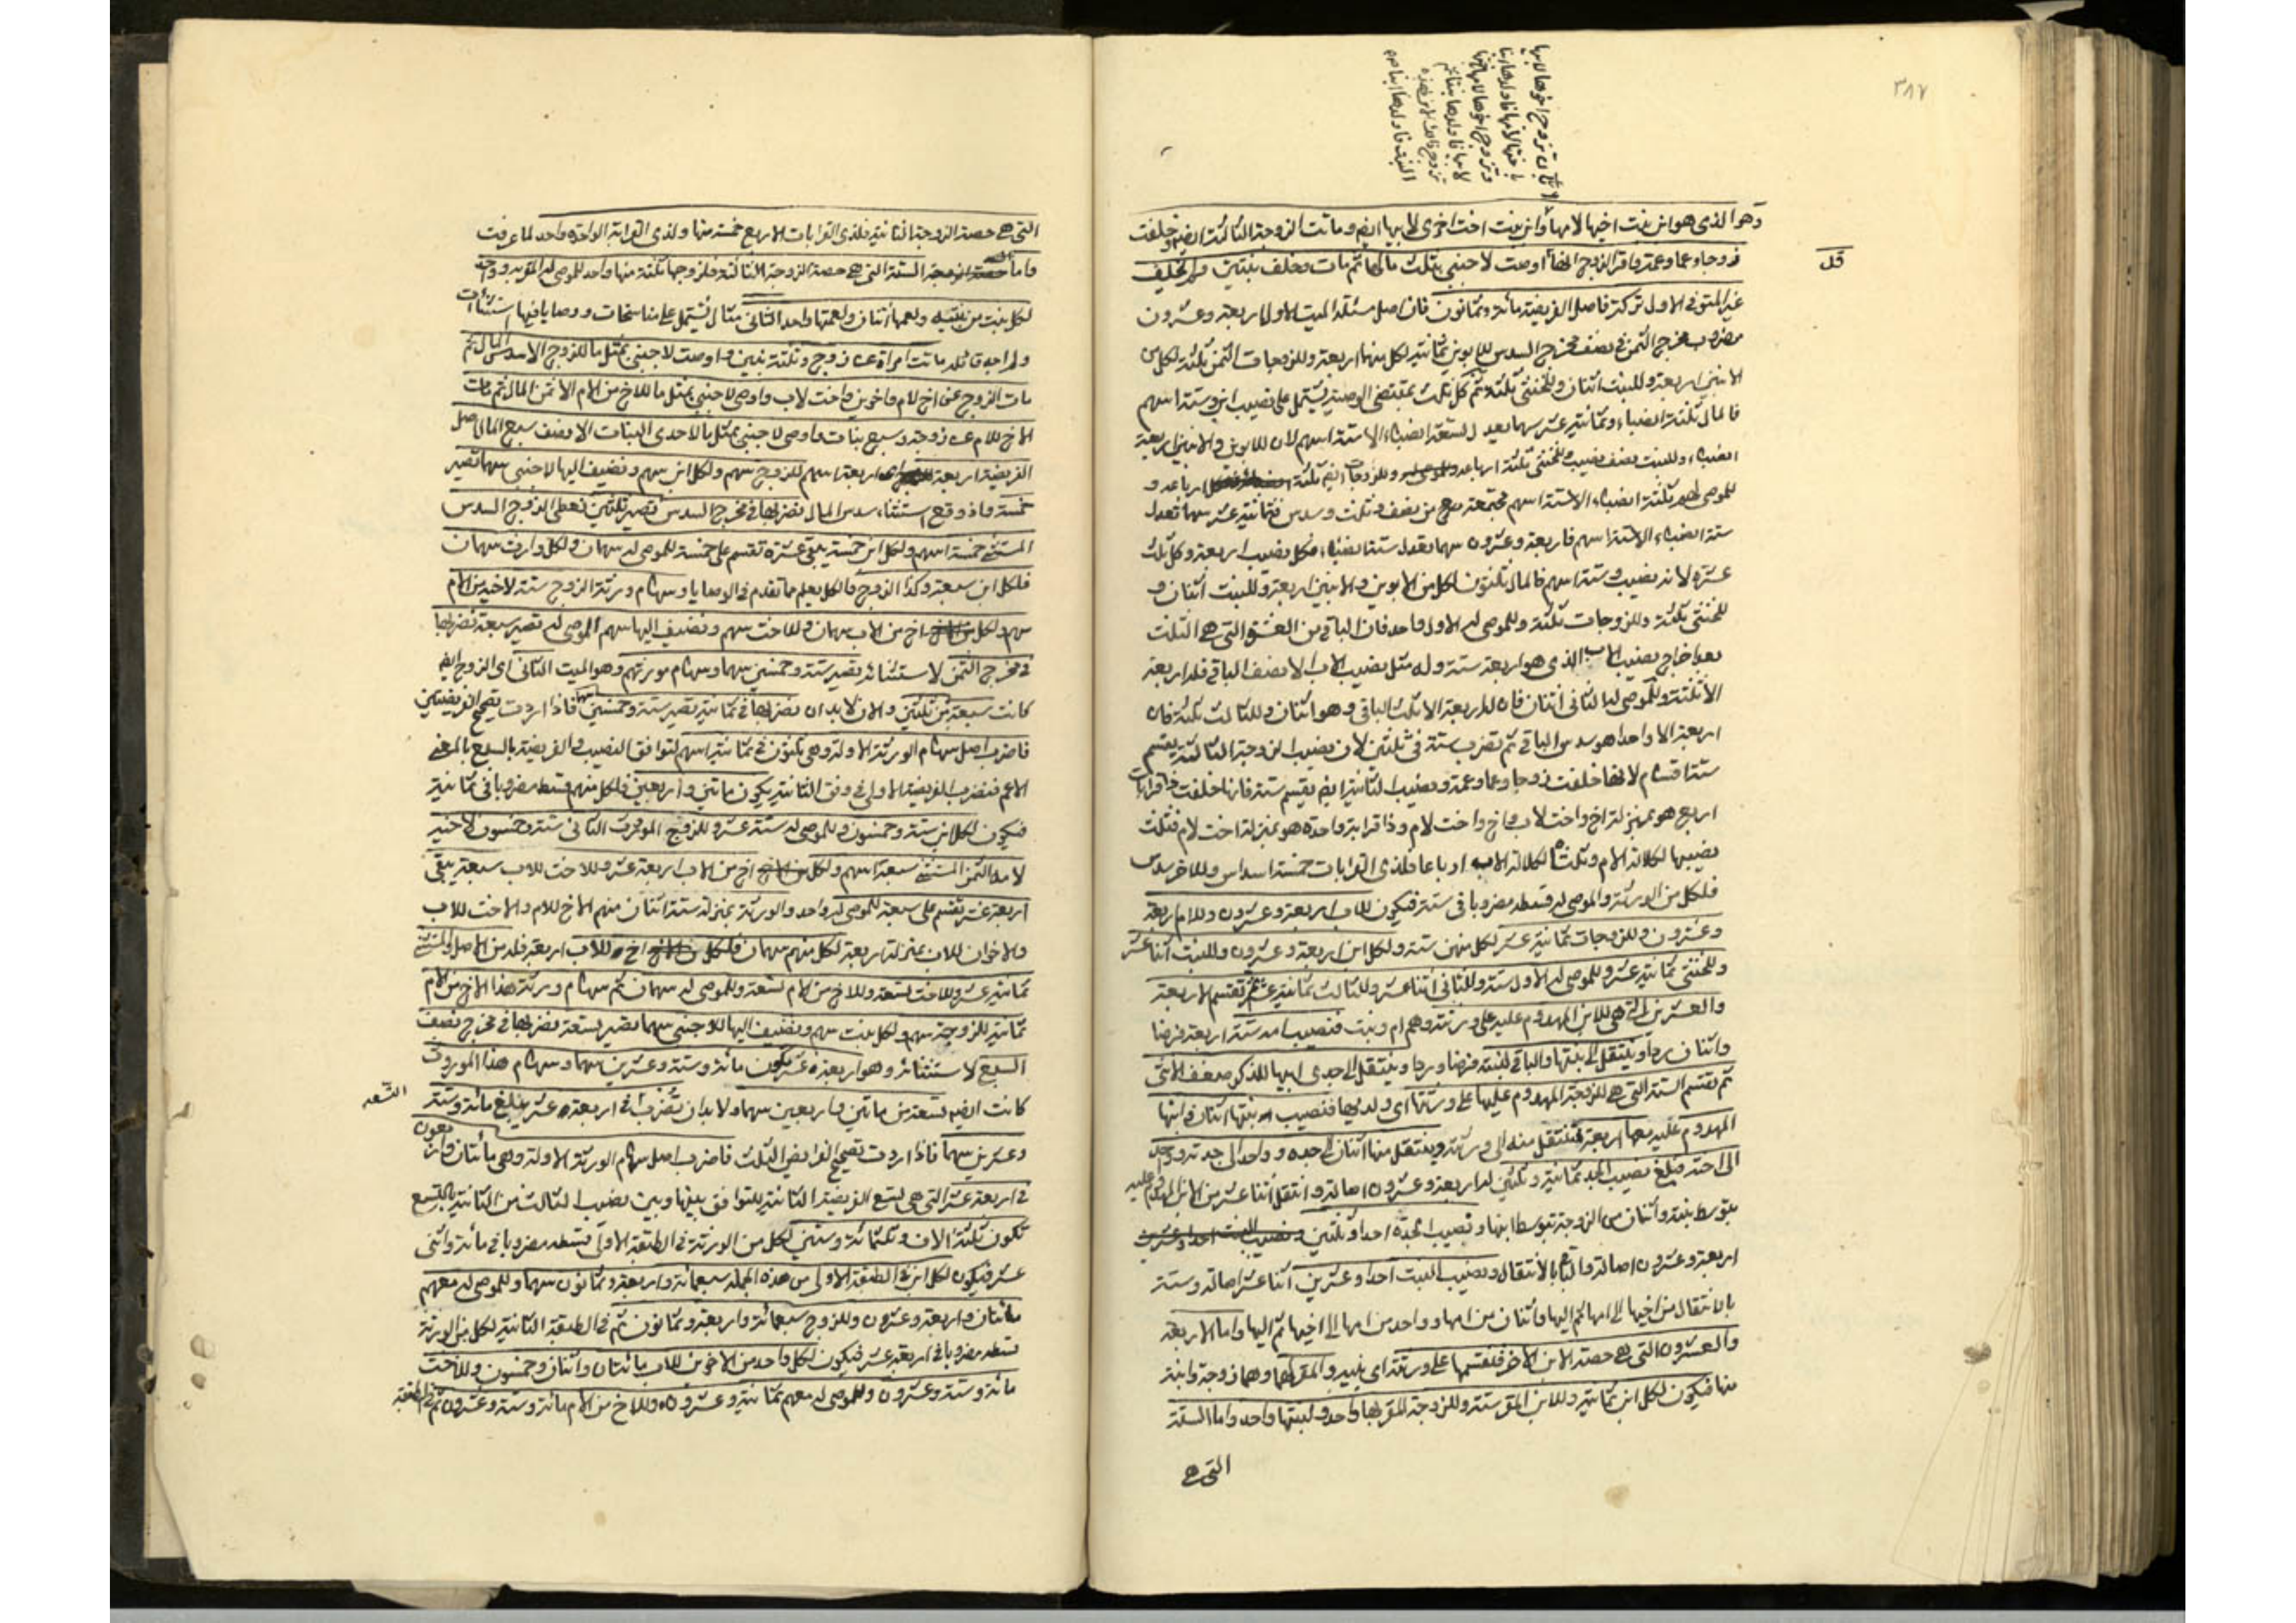 ٣٨٧
بان تزوج اخوها لابيها
باختها لامها فاولدها ابنا
وتزوج اخوها لامها باختها
لابيها فاولدها بنتا ثم
تزوج ذلك الابن بهذه
البنت فاولدها ابنا
وهو الذي هو ابن بنت اخيها لامها وابن بنت اخت اخرى لابيها ايضا وماتت الزوجة الثالثة ايضا وخلفت
زوجا وعما وعمة واقر الزوج اوصت لاجنبي بثلث مالها ثم مات وخلف بنتين ولم يخلف
قل
غير المتوفى الاول تركة فاصل الفريضة مائة وثمانون فان اصل مسئلة الميت الاول اربعة وعشرون
مضروب مخرج الثمن في نصف مخرج السدس للابوين ثمانية لكل منهما اربعة وللزوجات الثمن ثلثة لكل من
الابنين اربعة وللبنت اثنان وللخنثى ثلثة ثم كل ثلث بمقتضى الوصية يشتمل على نصيب ابن وستة اسهم
فالمال ثلثة انصباء وثمانية عشر سهما يعدل تسعة انصباء الا ستة اسهم لان للابوين والابنين اربعة
انصباء وللبنت نصف نصيب وللخنثى ثلثة ارباعه وللزوجات ايضا ثلثة ارباعه و
للموصى لهم ثلثة انصباء الا ستة اسهم مجتمعة من نصف وثلث وسدس فثمانية عشر سهما تعدل
ستة انصباء الا ستة اسهم فاربعة وعشرون سهما يعدل ستة انصباء فكل نصيب اربعة وكل ثلث
عشرة لانه نصيب وستة اسهم فالمال ثلثون لكل من الابوين والابنين اربعة وللبنت اثنان و
للخنثى ثلثة وللزوجات ثلثة وللموصى له الاول واحد فان الباقي من العشرة التي هي الثلث
بعد اخراج نصيب الاب الذي هو اربعة ستة وله مثل نصيب الاب الا نصف الباقي فله اربعة
الا ثلثة وللموصى له الثاني اثنان فان له اربعة الا ثلث الباقي وهو اثنان وللثالث ثلثة فان
اربعة الا واحدا هو سدس الباقي ثم تضرب ستة في ثلثين لان نصيب الزوجة الثالثة ينقسم
ستة اقسام لانها خلفت زوجا وعما وعمة ونصيب الثانية ايضا يقسم ستة فانها خلفت ذا قرابات
اربع هو بمنزلة اخ واخت لاب واخ واخت لام وذا قرابة واحدة هو بمنزلة اخت لام فثلث
نصيبها لكلالة الام وثلثاه لكلالة الاب ارباعا فلذي القرابات خمسة اسداس وللاخر سدس
فلكل من الورثة والموصى له قسطه مضروبا في ستة فيكون للاب اربعة وعشرون وللام اربعة
وعشرون وللزوجات ثمانية عشر لكل منهن ستة ولكل ابن اربعة وعشرون وللبنت اثنا عشر
وللخنثى ثمانية عشر وللموصى له الاول ستة وللثاني اثنا عشر وللثالث ثمانية عشر ثم تقسم الاربعة
والعشرين التي هي للابن المهدوم عليه على ورثته وهم ام وبنت فنصيب امه ستة اربعة فرضا
واثنان ردا وينتقل الى بنتها والباقي لبنته فرضا وردا وينتقل الى جدي ابيها للذكر ضعف الانثى
ثم تقسم الستة التي هي للزوجة المهدوم عليها على ورثتها اي ولديها فنصيب بنتها اثنان وابنها
المهدوم عليه معها اربعة فتنتقل منه الى ورثته وينتقل منها اثنان الى جده وواحد الى جدته وواحد
الى اخته فيبلغ نصيب الجد ثمانية وثلثين له اربعة وعشرون اصالة وانتقل اثنا عشر من الابن المهدوم عليه
بتوسط بنته واثنان من الزوجة بتوسط ابنها ونصيب الجدة احدا وثلثين
اربعة وعشرون اصالة والباقي بالانتقال ونصيب البنت احدا وعشرين اثنا عشر اصالة وستة
بالانتقال من اخيها الى امها ثم اليها واثنان من امها وواحد من امها الى اخيها ثم اليها واما الاربعة
والعشرون التي هي حصة الابن الاخر فنقسمها على ورثته اي بنيه والمقر لهما وهما زوجة وابنة
منها فيكون لكل ابن ثمانية وللابن المقر ستة وللزوجة المقر بها واحد ولبنتها واحد واما الستة
التي هي
التي هي حصة الزوجة الثانية فلذي القرابات الاربع خمسة منها ولذي القرابة الواحدة واحد لما عرفت
واما الستة التي هي حصة الزوجة الثالثة فلزوجها ثلثة منها واحد للموصى له المقر به وواحد
لكل بنت من بنتيه ولعمها اثنان ولعمتها واحد الثاني مثال يشتمل على مناسخات ووصايا فيها استثناءات
ولم اجد قائله ماتت امراة عن زوج وثلثة بنين واوصت لاجنبي بمثل ما للزوج الا سدس المال ثم
مات الزوج عن اخ لام واخوين واخت لاب واوصى لاجنبي بمثل ما للاخ من الام الا ثمن المال ثم مات
الاخ للام عن زوجة وسبع بنات واوصى لاجنبي بمثل ما لاحدى البنات الا نصف سبع المال اصل
الفريضة اربعة اربعة اسهم للزوج سهم ولكل ابن سهم ونضيف اليها لاجنبي سهما تصير
خمسة واذ وقع استثناء سدس المال نضربها في مخرج السدس تصير ثلثين نعطي الزوج السدس
المستثنى خمسة اسهم ولكل ابن خمسة يبقى عشرة تقسم على خمسة للموصى له سهمان ولكل وارث سهمان
فلكل ابن سبعة وكذا الزوج والكل يعلم ما تقدم في الوصايا وسهام ورثة الزوج ستة لاخيه من الام
سهم ولكل اخ من الاب سهمان وللاخت سهم ونضيف اليها سهم الموصى له تصير سبعة نضربها
في مخرج الثمن لاستثنائه يصير ستة وخمسين سهما وسهام مورثهم وهو الميت الثاني اي الزوج ايضا
كانت سبعة من ثلثين والان لا بد ان نضربها في ثمانية تصير ستة وخمسين سهما فاذا اردت تصحيح الفريضتين
فاضرب اصل سهام الورثة الاولة وهي ثلثون في ثمانية اسهم لتوافق النصيب والفريضة بالسبع بالمعنى
الاعم فتضرب الفريضة الاولى في وفق الثانية يكون ماتين واربعين فلكل منهم قسطه مضروبا في ثمانية
فيكون لكل ابن ستة وخمسون وللموصى له ستة عشر وللزوج الموروث الثاني ستة وخمسون لاخيه
لامه الثمن المستثنى سبعة اسهم ولكل اخ من الاب اربعة عشر وللاخت للاب سبعة يبقى
اربعة عشر تقسم على سبعة للموصى له واحد والورثة بمنزلة ستة اثنان منهم الاخ للام والاخت للاب
والاخوان للاب بمنزلة اربعة لكل منهم سهمان فلكل اخ للاب اربعة فله من الاصل والمستثنى
ثمانية عشر وللاخت تسعة وللاخ من الام تسعة وللموصى له سهمان ثم سهام ورثة هذا الاخ من الام
ثمانية للزوجة سهم ولكل بنت سهم ونضيف اليها للاجنبي سهما يصير تسعة نضربها في مخرج نصف
السبع لاستثنائه وهو اربعة عشر يكون مائة وستة وعشرين سهما وسهام هذا الموروث
كانت ايضا تسعة من ماتين واربعين سهما ولا بد ان تضرب في اربعة عشر يبلغ مائة وستة
التسعة
وعشرين سهما فاذا اردت تصحيح الفرائض الثلث فاضرب اصل سهام الورثة الاولة وهي مائتان واربعون
في اربعة عشر التي هي تسع الفريضة الثانية للتوافق بينها وبين نصيب الثالث من الثانية بالتسع
تكون ثلثة الاف وثلثمائة وستين لكل من الورثة في الطبقة الاولى قسطه مضروبا في مائة واثنى
عشر فيكون لكل ابن في الطبقة الاولى من هذه الجملة سبعمائة واربعة وثمانون سهما وللموصى له معهم
مائتان واربعة وعشرون وللزوج سبعمائة واربعة وثمانون ثم في الطبقة الثانية لكل من الورثة
قسطه مضروبا في اربعة عشر فيكون لكل واحد من الاخوين للاب مائتان واثنان وخمسون وللاخت
مائة وستة وعشرون وللموصى له معهم ثمانية وعشرون وللاخ من الام مائة وستة وعشرون ثم في الطبقة